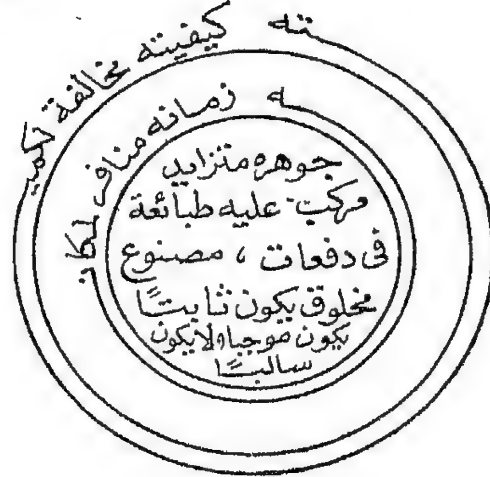 كيفيته مخالفة لكميـ ـته
زمانه منافر لمكانـ ـه
جوهره متزايد
مركب عليه طبائعة
فى دفعات ، مصنوع
مخلوق يكون ثابتًا
يكون موجبا ولا يكون
سالبًا